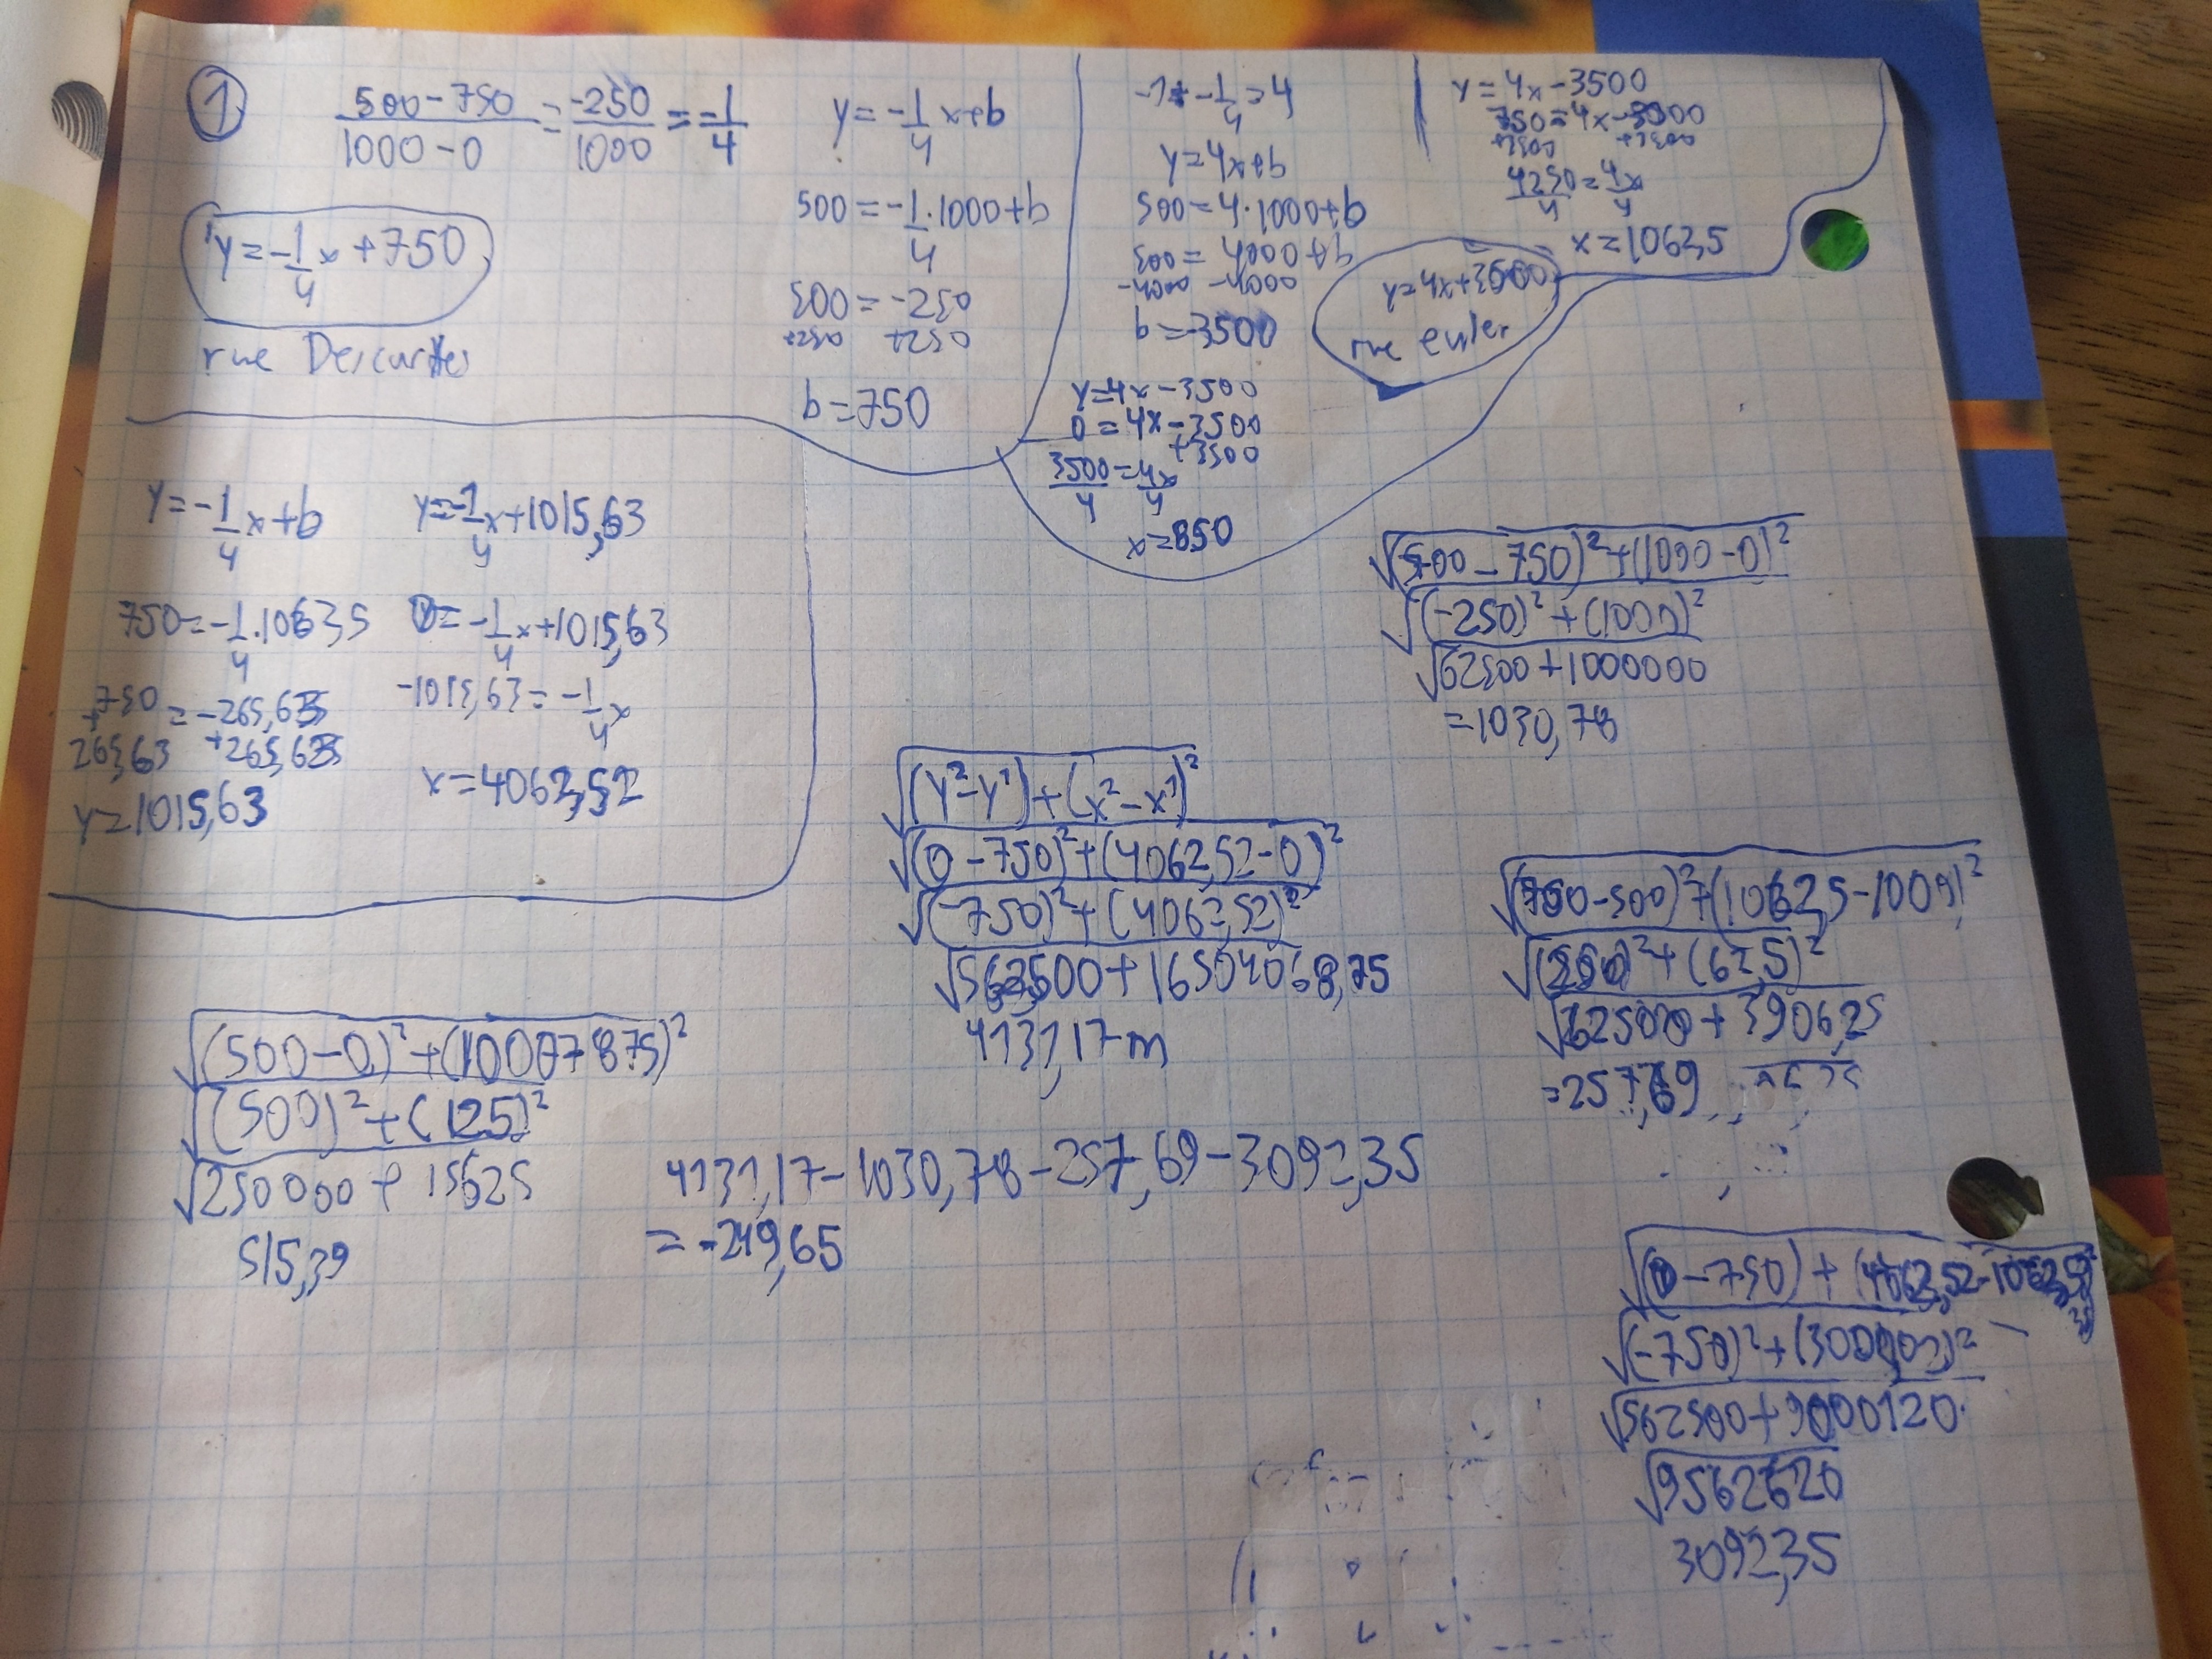 ①
500-750 / 1000-0 = -250 / 1000 = -1/4
y=-1/4x+750
rue Descartes
y=-1/4x+b
500=-1/4·1000+b
500=-250
+250 +250
b=750
-1÷-1/4=4
y=4x+b
500=4·1000+b
500=4000+b
-4000 -4000
b=-3500
y=4x-3500
0=4x-3500
+3500
3500/4=4x/4
x=850
y=4x-3500
750=4x-3500
+3500 +3500
4250/4=4x/4
x=1062,5
y=4x+3500
rue euler
y=-1/4x+b
750=-1/4·1063,5
+750=-265,635
265,63 +265,635
y=1015,63
y=-1/4x+1015,63
0=-1/4x+1015,63
-1015,63=-1/4x
x=4062,52
√(500-750)²+(1000-0)²
√(-250)²+(1000)²
√62500+1000000
=1030,78
√(y²-y¹)+(x²-x¹)²
√(0-750)²+(4062,52-0)²
√(-750)²+(4062,52)²
√562500+16504068,75
4131,17m
√(750-500)²+(1062,5-1000)²
√(250)²+(62,5)²
√62500+3906,25
=257,69
√(500-0)²+(1000-875)²
√(500)²+(125)²
√250000+15625
515,39
4131,17-1030,78-257,69-3092,35
=-249,65
√(0-750)+(4062,52-1062,5)²
√(-750)²+(3000,02)²
√562500+9000120
√9562620
3092,35